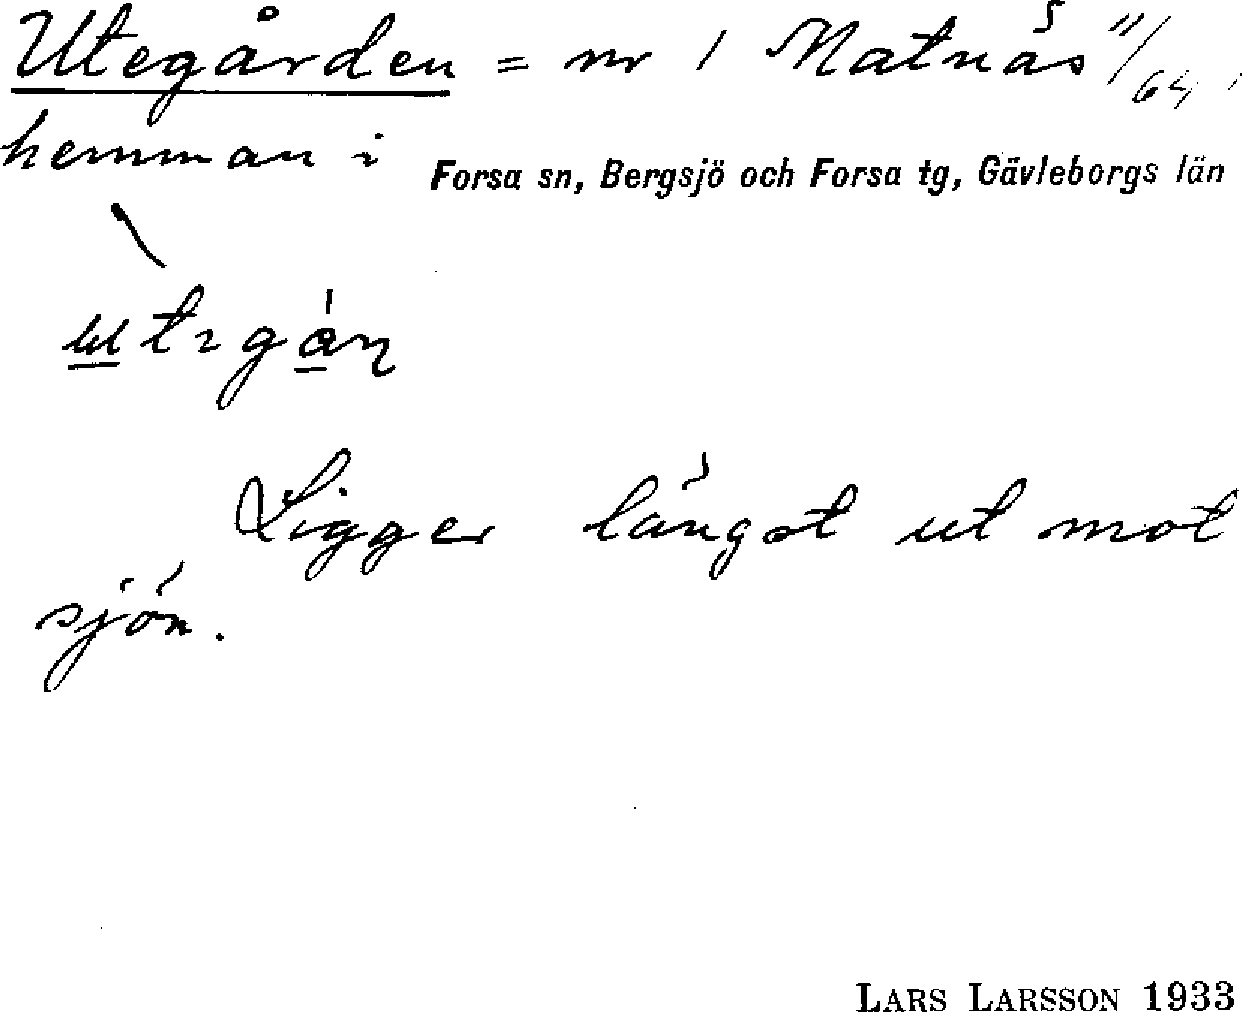 Utegården = nr 1 Matnäs 11/64,
hemman i Forsa sn, Bergsjö och Forsa tg, Gävleborgs län
Ligger längst ut mot
sjön.
LARS LARSSON 1933